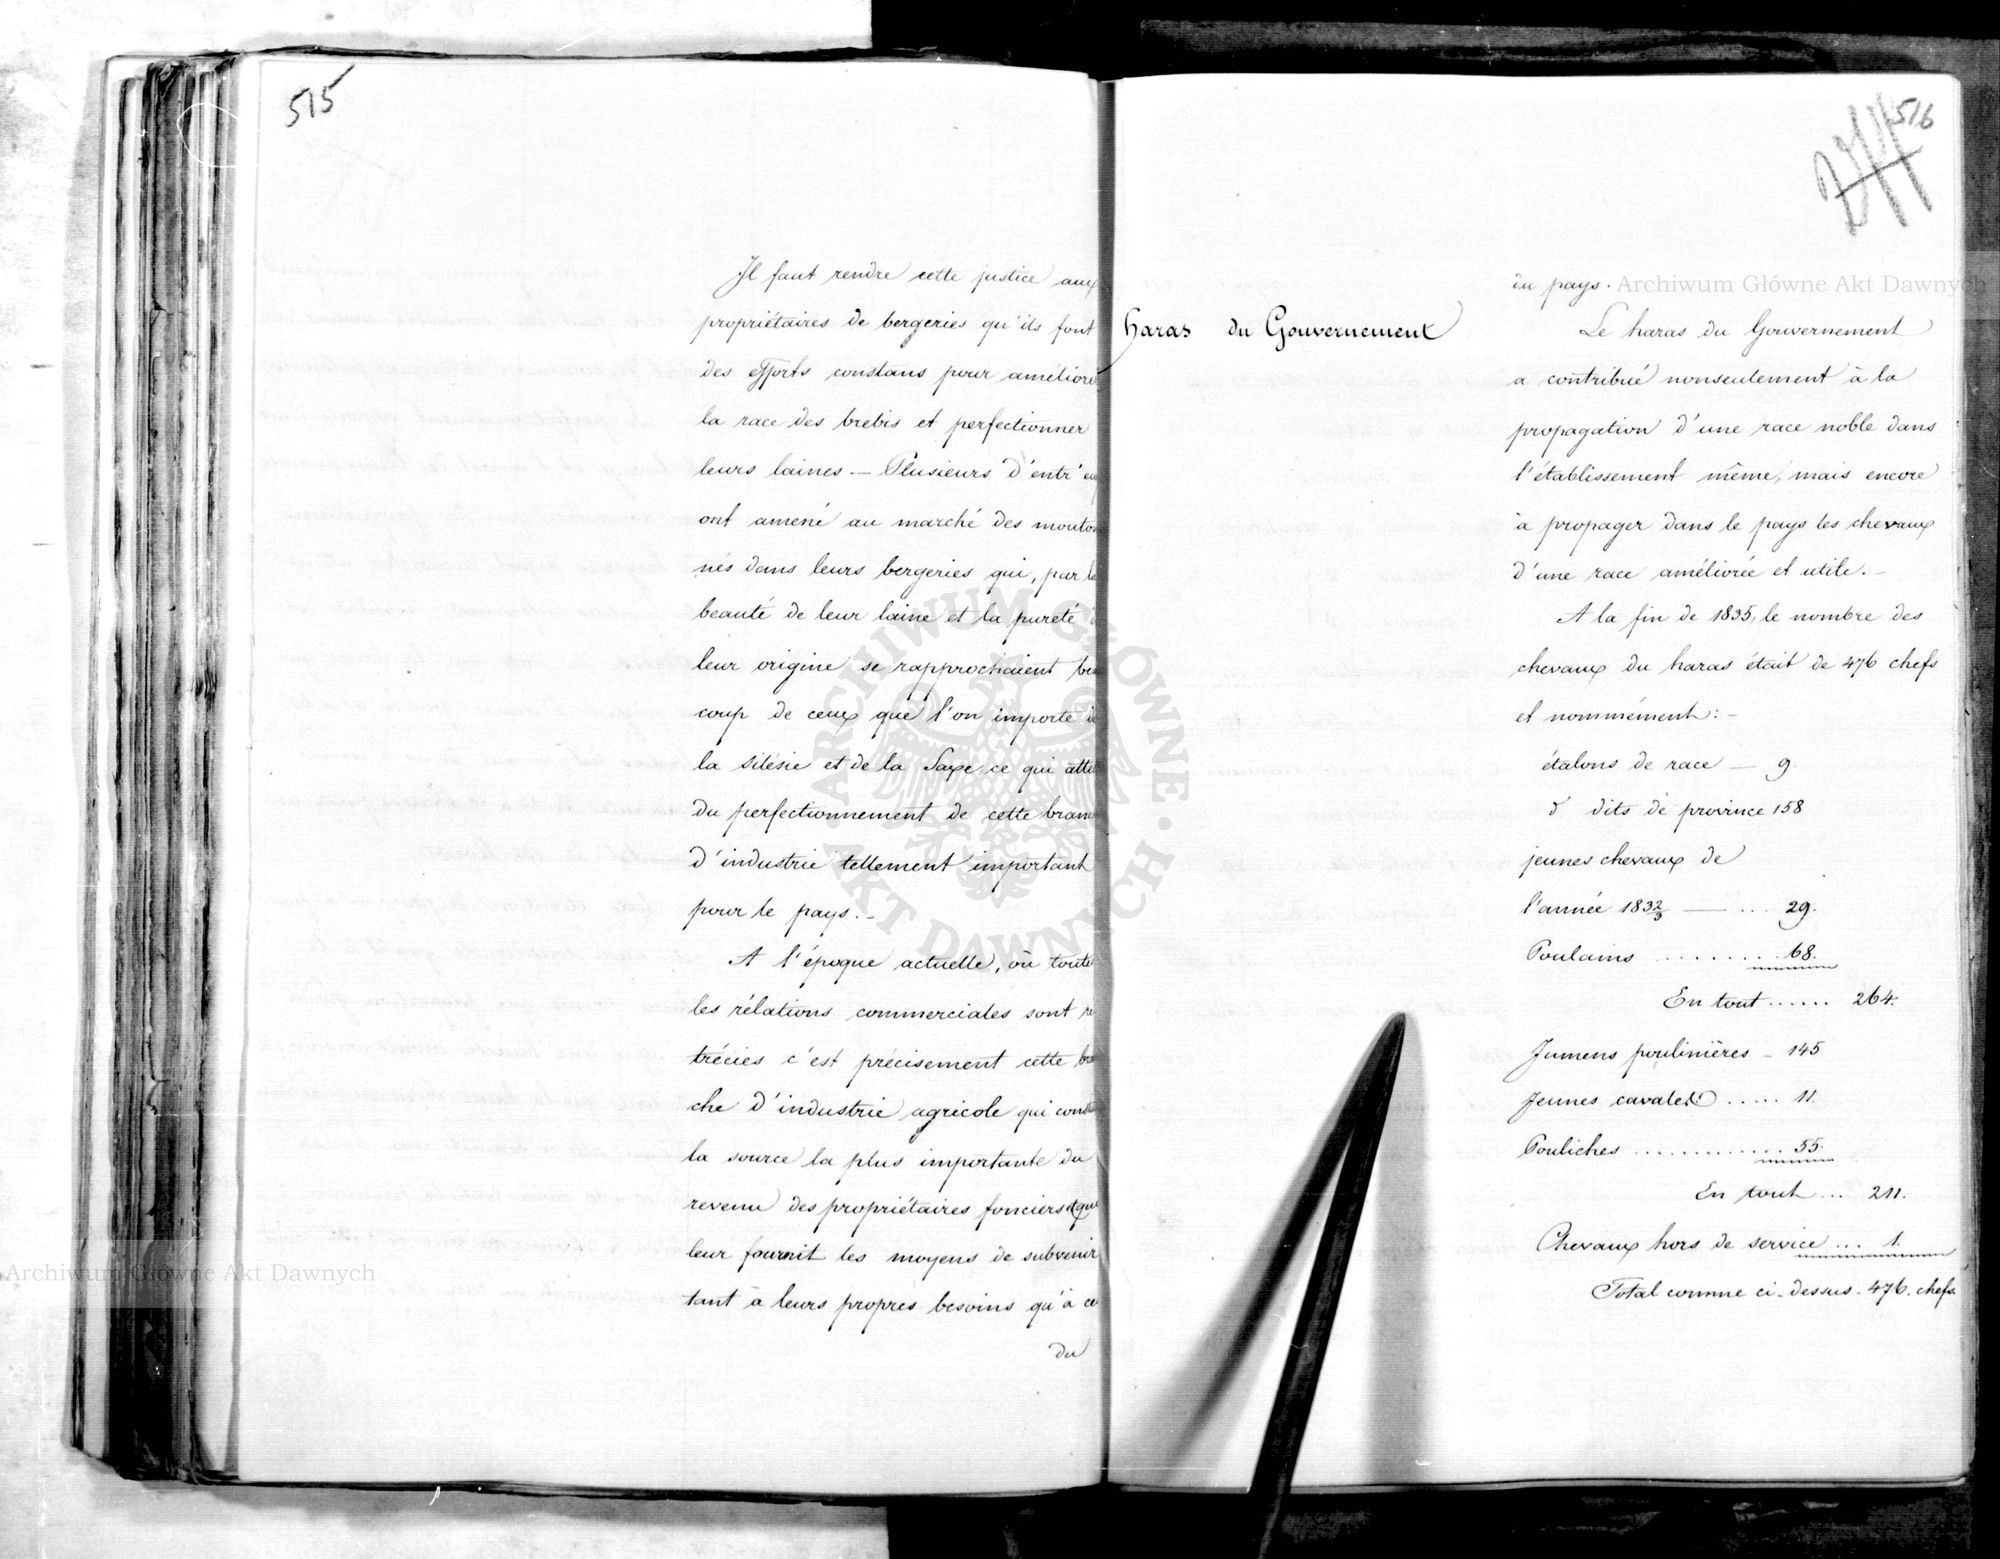 515
Il faut rendre cette justice aux
propriétaires de bergeries qu'ils font
des efforts constans pour améliorer
la race des brebis et perfectionner
leurs laines — Plusieurs d'entr'eux
ont amené au marché des mouton
nés dans leurs bergeries qui, par la
beauté de leur laine et la pureté d
leur origine se rapprochaient beau
coup de ceux que l'on importe de
la Silésie et de la Saxe, ce qui atte
du perfectionnement de cette bran
d'industrie tellement important
pour le pays. —
A l'époque actuelle, où toute
les rélations commerciales sont re
trécies c'est précisement cette bran
che d'industrie agricole qui const
la source la plus importante du
revenu des propriétaires fonciers et qui
leur fournit les moyens de subvenir
tant à leurs propres besoins qu'à ce
du
516
Haras du Gouvernement
du pays.
Le haras du Gouvernement
a contribué nonseulement à la
propagation d'une race noble dans
l'établissement même, mais encore
à propager dans le pays les chevaux
d'une race améliorée et utile. —
A la fin de 1835, le nombre des
chevaux du haras était de 476 chefs
et nommément: —
étalons de race — 9.
d° dits de province 158
jeunes chevaux de
l'année 1832/3 — ... 29.
Poulains ......... 68.
En tout ...... 264.
Jumens poulinières — 145
Jeunes cavales ..... 11.
Pouliches ............. 55.
En tout ... 211.
Chevaux hors de service ... 1.
Total comme ci-dessus - 476. chefs.
Archiwum Główne Akt Dawnych
Archiwum Główne Akt Dawnych
ARCHIWUM GŁÓWNE · AKT DAWNYCH ·